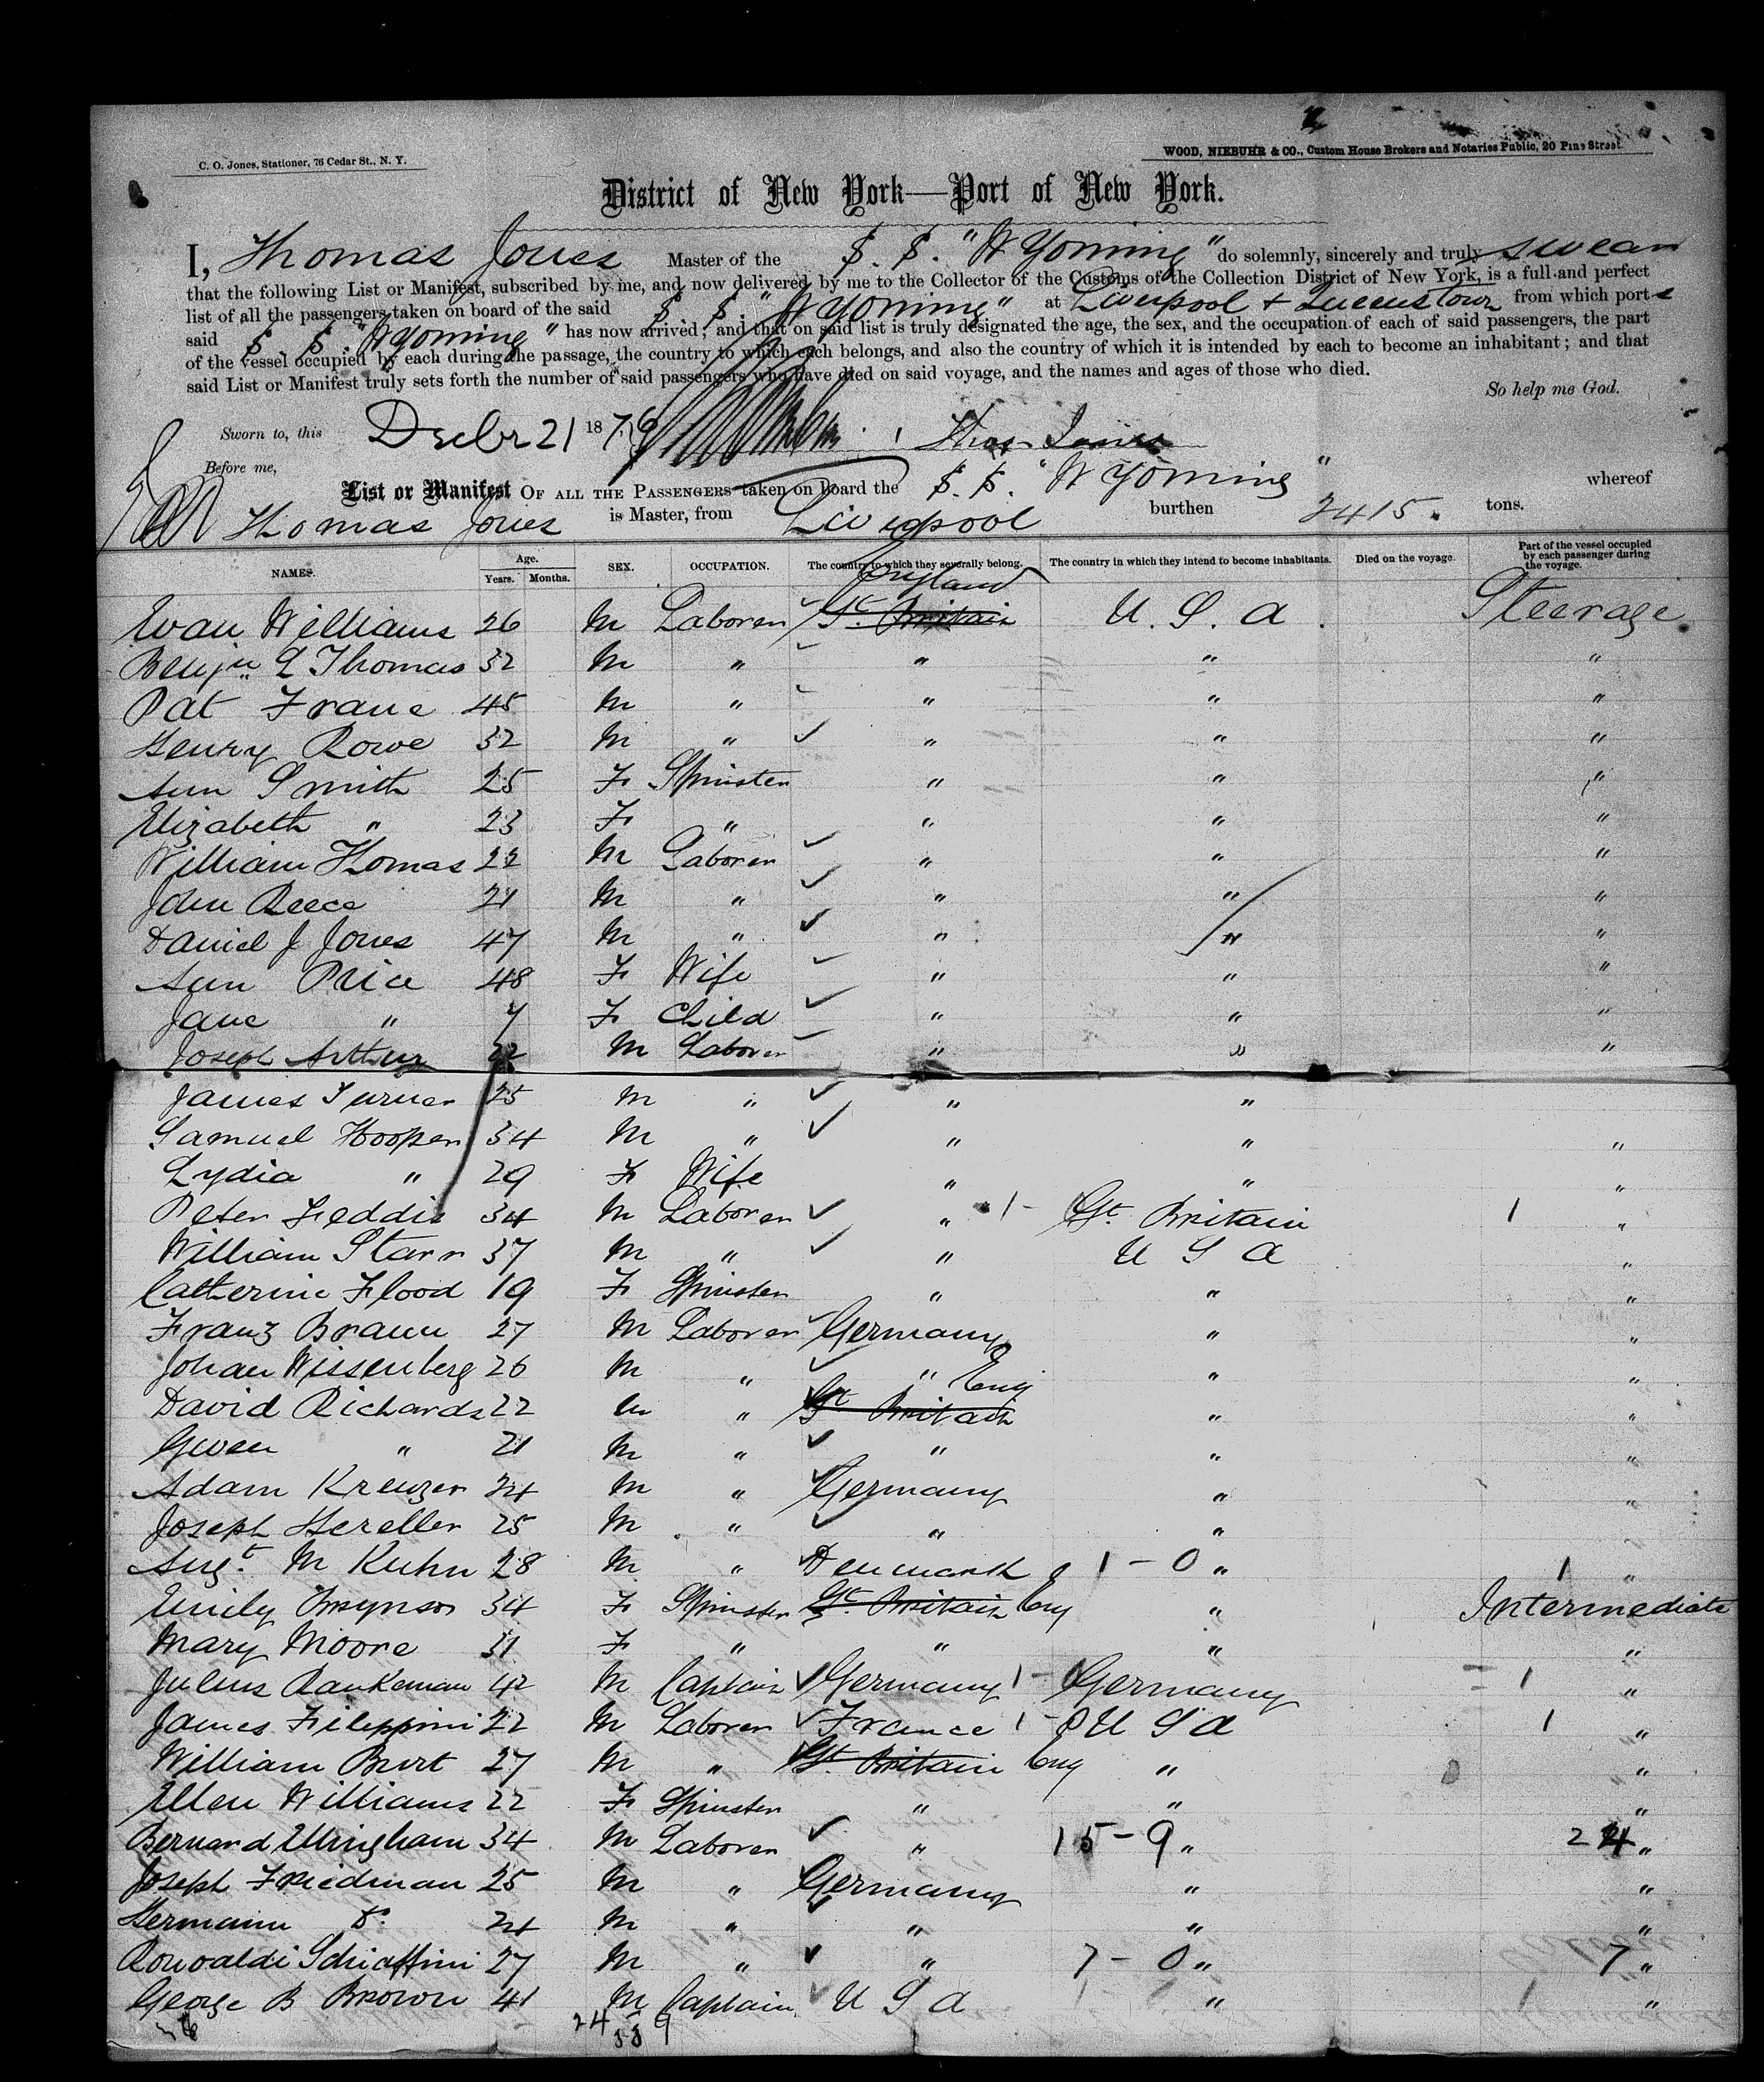 C. O. Jones, Stationer, 76 Cedar St., N. Y.
WOOD, NIEBUHR & CO., Custom House Brokers and Notaries Public, 20 Pine Street.
District of New York—Port of New York.
I, Thomas Jones Master of the S. S. "Wyoming" do solemnly, sincerely and truly swear
that the following List or Manifest, subscribed by me, and now delivered by me to the Collector of the Customs of the Collection District of New York, is a full and perfect
list of all the passengers taken on board of the said S. S. "Wyoming" at Liverpool + Queenstown from which ports
said S. S. "Wyoming" has now arrived; and that on said list is truly designated the age, the sex, and the occupation of each of said passengers, the part
of the vessel occupied by each during the passage, the country to which each belongs, and also the country of which it is intended by each to become an inhabitant; and that
said List or Manifest truly sets forth the number of said passengers who have died on said voyage, and the names and ages of those who died.
So help me God.
Sworn to, this Decbr 21 1876 Thos Jones
Before me,
List or Manifest OF ALL THE PASSENGERS taken on board the S. S. "Wyoming" whereof
Thomas Jones is Master, from Liverpool burthen 2415. tons.
NAMES. Age. Years. Months. SEX. OCCUPATION. The country to which they severally belong. The country in which they intend to become inhabitants. Died on the voyage. Part of the vessel occupied by each passenger during the voyage.
England
Evan Williams 26 M Laborer Gt. Britain U. S. A. Steerage
Benjn. L Thomas 32 M " " " "
Pat Frane 45 M " " " "
Henry Rowe 32 M " " " "
Ann Smith 25 F Spinster " " "
Elizabeth " 23 F " " " "
William Thomas 22 M Laborer " " "
John Reece 21 M " " " "
Daniel J Jones 47 M " " " "
Ann Price 48 F Wife " " "
Jane " 7 F Child " " "
Joseph Arthur 22 M Laborer " " "
James Turner 25 M " " "
Samuel Hooper 34 M " " " "
Lydia " 29 F Wife " " "
Peter Feddis 34 M Laborer " 1 - Gt. Britain 1 "
William Starr 37 M " " U S A "
Catherine Flood 19 F Spinster " " "
Franz Braun 27 M Laborer Germany " "
Johan Wissenberg 26 M " " " "
David Richards 22 M " Gt. Britain Eng " "
Gwen " 21 M " " " "
Adam Kreuzer 24 M " Germany " "
Joseph Hereller 25 M " " " "
Augt. M Kuhn 28 M " Denmark 1 - 0 " 1 "
Emily Brynson 34 F Spinster Gt. Britain Eng " Intermediate
Mary Moore 31 F " " " "
Julius 42 M Captain Germany 1 - Germany 1 "
James Fileppini 22 M Laborer France 1 - 0 U S A 1 "
William Burt 27 M " Gt. Britain Eng " "
Ellen Williams 22 F Spinster " " "
Bernard 34 M Laborer " 15 - 9 " 24 "
Joseph Friedman 25 M " Germany " "
Hermann Do. 24 M " " " "
Schiaffini 27 M " " 7 - 0 " 7 "
George B Brown 41 M Captain U S A " 1 "
24 9